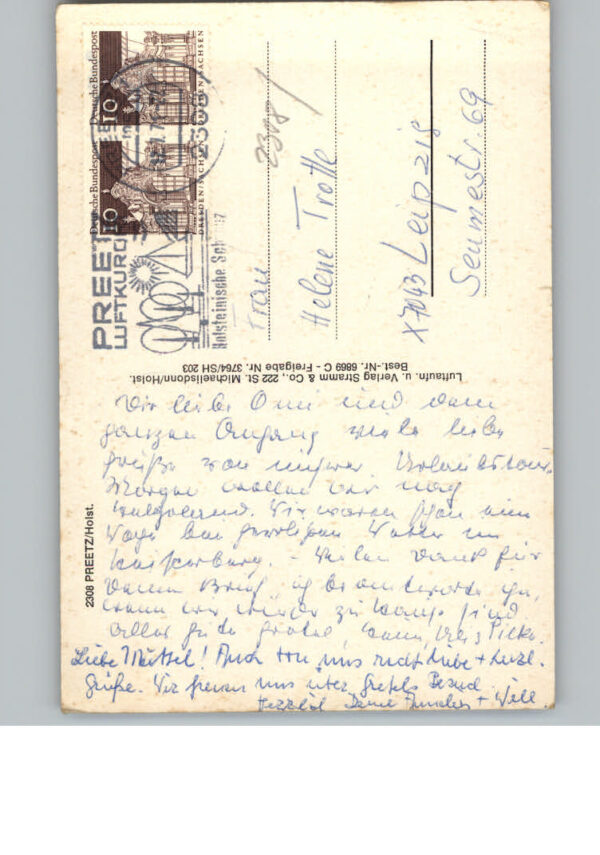 Deutsche Bundespost
10
DRESDEN/SACHSEN
Deutsche Bundespost
10
DRESDEN/SACHSEN
PREETZ
LUFTKURO
Holsteinische Sch
2308
Frau
Helene Trolle
X7043 Leipzig
Seumestr. 69
Luftaufn. u. Verlag Stramm & Co., 222 St. Michaelisdonn/Holst.
Best.-Nr. 6869 C - Freigabe Nr. 3764/SH 203
2308 PREETZ/Holst.
Dir liebe Omi und dem
ganzen Anhang viele liebe
Grüße von unserer
Morgen wollen wir nach
Helgoland. Wir waren schon
Tage bei Wetter in
- Vielen Dank für
Deinen Brief, ich beantworte ihn,
wenn wir wieder zu Hause sind
Alles Gute
Liebe Muttel! Auch von uns recht liebe + herzl.
Grüße. Wir freuen uns über Gretels Besuch.
Herzlich Deine + Willi